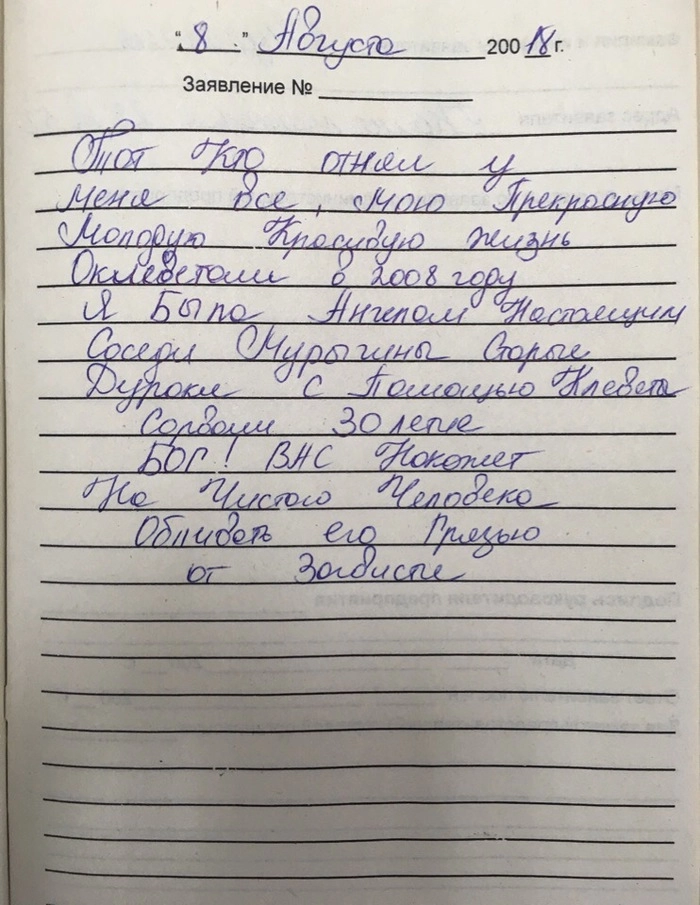 "8" Августа 20018г.
Заявление №
Тот Кто отнял у
меня Все, Мою Прекрасную
Молодую Красивую жизнь
Оклеветали в 2008 году
Я Была Ангелом Настоящим
Соседи Мурыгины Старые
Дураки С Помощью Клеветы
Сорвали 30 летие
БОГ! ВАС Накажет
На Чистого Человека
Обливать его Грязью
от Зависти